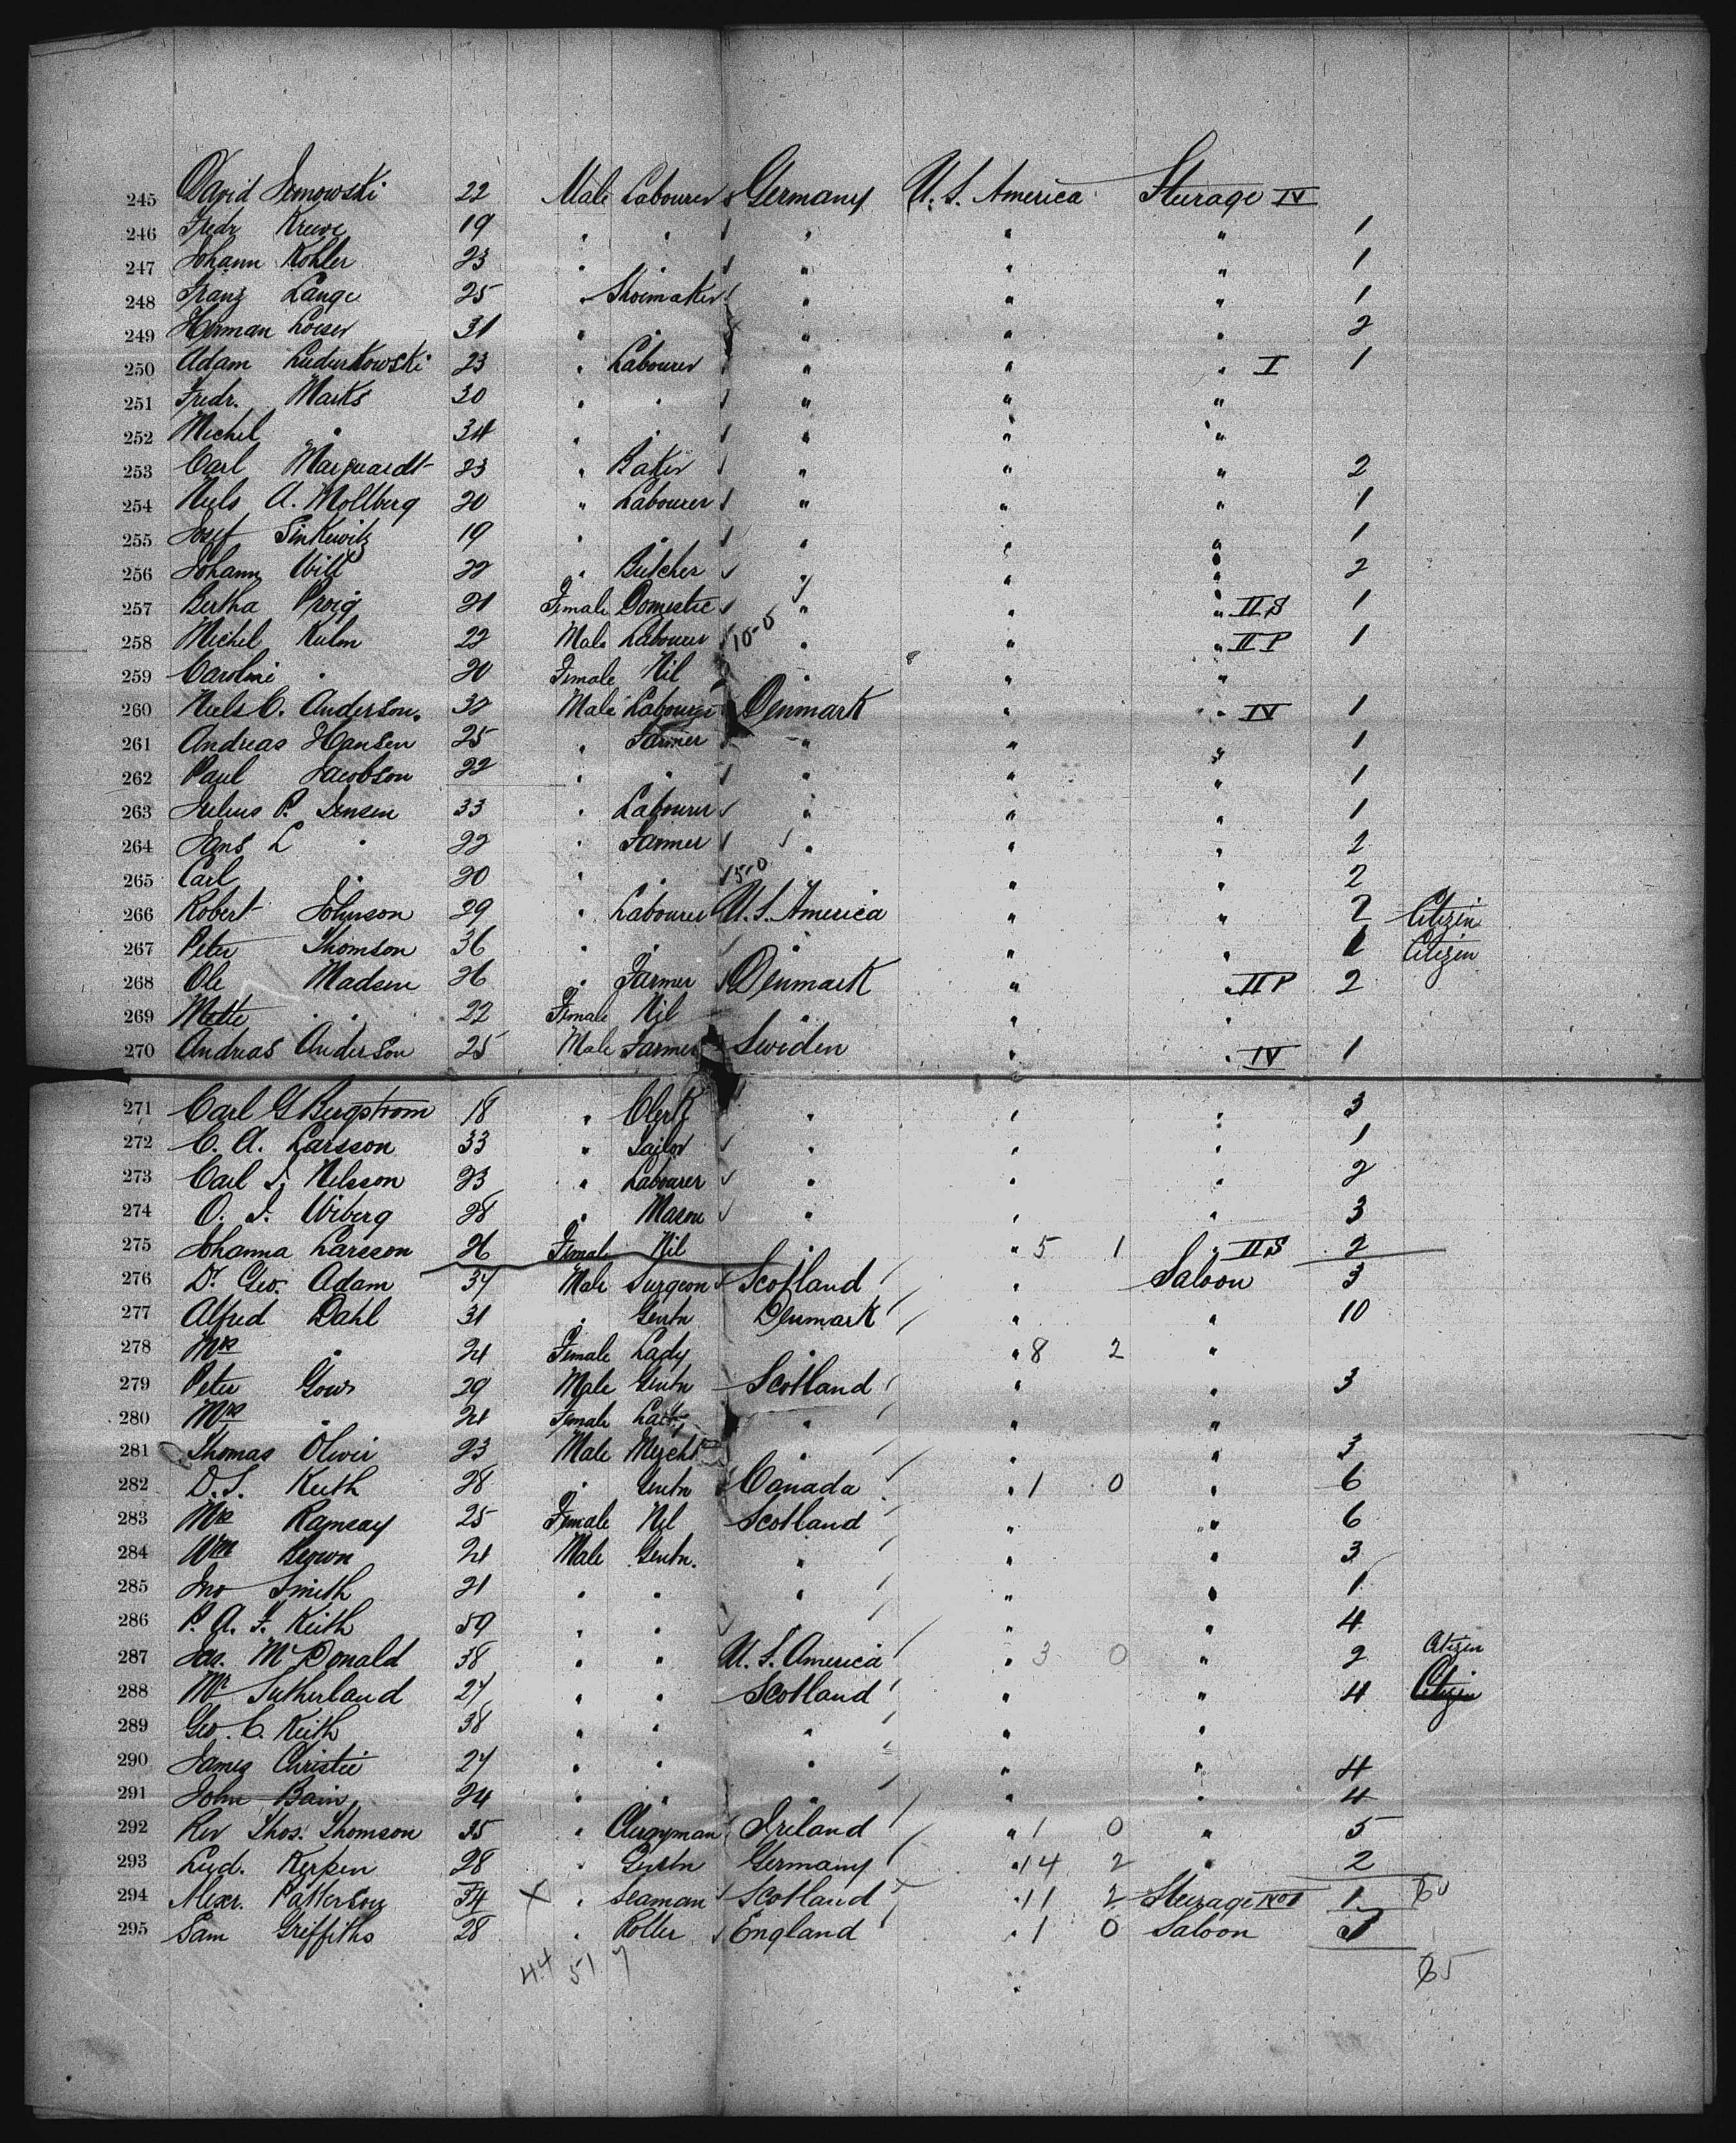 245 David Jemowski 22 Male Labourer Germany U.S. America Steurage IV
246 Fredr Kruve 19 " " " " " 1
247 Johann Kohler 23 " " " " " 1
248 Franz Lange 25 " Shoimaker " " " 1
249 Herman Loeser 31 " " " " " 2
250 Adam Ludurkowski 23 " Labourer " " " I 1
251 Fredr. Marks 30 " " " " "
252 Michel " 34 " " " " "
253 Carl Marquardt 23 " Baker " " " 2
254 Niels A. Mollberg 20 " Labourer " " " 1
255 Josef Sinkewitz 19 " " " " " 1
256 Johann Will 22 " Butcher " " " 2
257 Bertha Proig 21 Female Domestic " " " II S 1
258 Michel Kulm 22 Male Labourer 10-0 " " " II P 1
259 Carolini " 20 Female Nil " " "
260 Niels C. Anderson. 32 Male Labourer Denmark " " IV 1
261 Andreas Hansen 25 " Farmer " " " 1
262 Paul Jacobson 22 " " " " " 1
263 Julius P. Jensen 33 " Labourer " " " 1
264 Jens L " 22 " Farmer " " " 2
265 Carl " 20 " " 15-0 " " 2
266 Robert Johnson 29 " Labourer U.S. America " " 2 Citizin
267 Peter Thomson 36 " " " " 1 Citizin
268 Ole Madsen 26 " Farmer Denmark " " II P 2
269 Mette " 22 Female Nil " "
270 Andreas Anderson 25 Male Farmer Swiden " " IV 1
271 Carl G Bergstrom 18 " Clerk " " " 3
272 C. A. Larsson 33 " Sailor " " " 1
273 Carl J. Nilsson 23 " Labourer " " " 2
274 O. J. Wiberg 28 " Mason " " " 3
275 Johanna Larsson 26 Female Nil " " 5 1 " II S 2
276 Dr. Geo. Adam 34 Male Surgeon Scotland " Saloon 3
277 Alfred Dahl 31 " Gentn Denmark " " 10
278 Mrs " 24 Female Lady " " 8 2 "
279 Peter Gow 29 Male Gentn Scotland " " 3
280 Mrs " 24 Female Lady " " "
281 Thomas Oliver 23 Male Mercht " " " 3
282 D. S. Keith 28 " Gentn Canada " 1 0 " 6
283 Mrs Ramsay 25 Female Nil Scotland " " 6
284 Wm Brown 24 Male Gentn. " " " 3
285 Jno Smith 21 " " " " " 1
286 P. A. F. Keith 59 " " " " 4
287 Jas. McDonald 38 " " U.S. America " 3 0 " 2 Citizen
288 Mr Sutherland 27 " " Scotland " " 4 Citizin
289 Geo. C. Keith 38 " " " " "
290 James Christie 27 " " " " " 4
291 John Bain 24 " " " " " 4
292 Rev Thos. Thomson 35 " Clergyman Ireland " 1 0 " 5
293 Lud. Kerpen 28 " Gentn Germany " 14 2 " 2
294 Alexr. Patterson 34 X " Seaman Scotland " 11 2 Steurage 1
295 Sam Griffiths 28 " Potter England " 1 0 Saloon 3
44 51 7